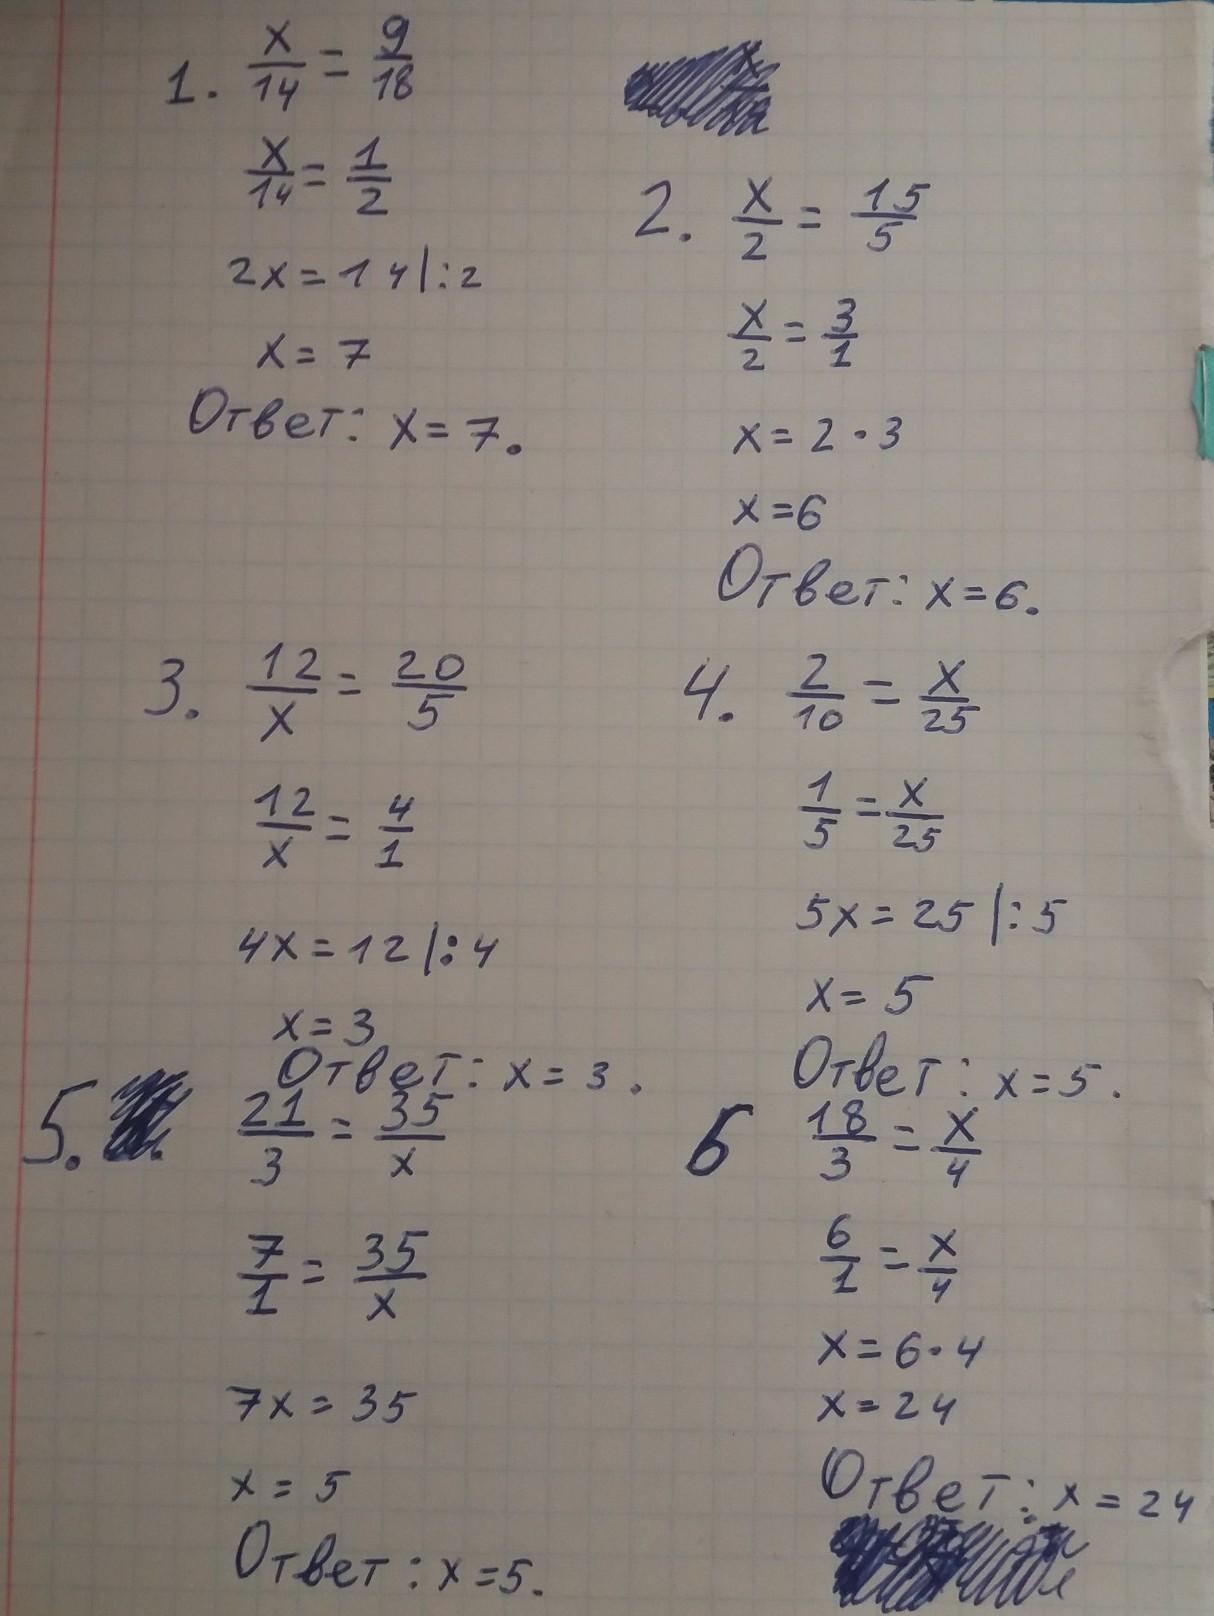 1. x/14 = 9/18
x/14 = 1/2
2x = 14 |:2
x = 7
Ответ: x = 7.
2. x/2 = 15/5
x/2 = 3/1
x = 2 · 3
x = 6
Ответ: x = 6.
3. 12/x = 20/5
12/x = 4/1
4x = 12 |:4
x = 3
Ответ: x = 3.
4. 2/10 = x/25
1/5 = x/25
5x = 25 |:5
x = 5
Ответ: x = 5.
5. 21/3 = 35/x
7/1 = 35/x
7x = 35
x = 5
Ответ: x = 5.
6 18/3 = x/4
6/1 = x/4
x = 6 · 4
x = 24
Ответ: x = 24